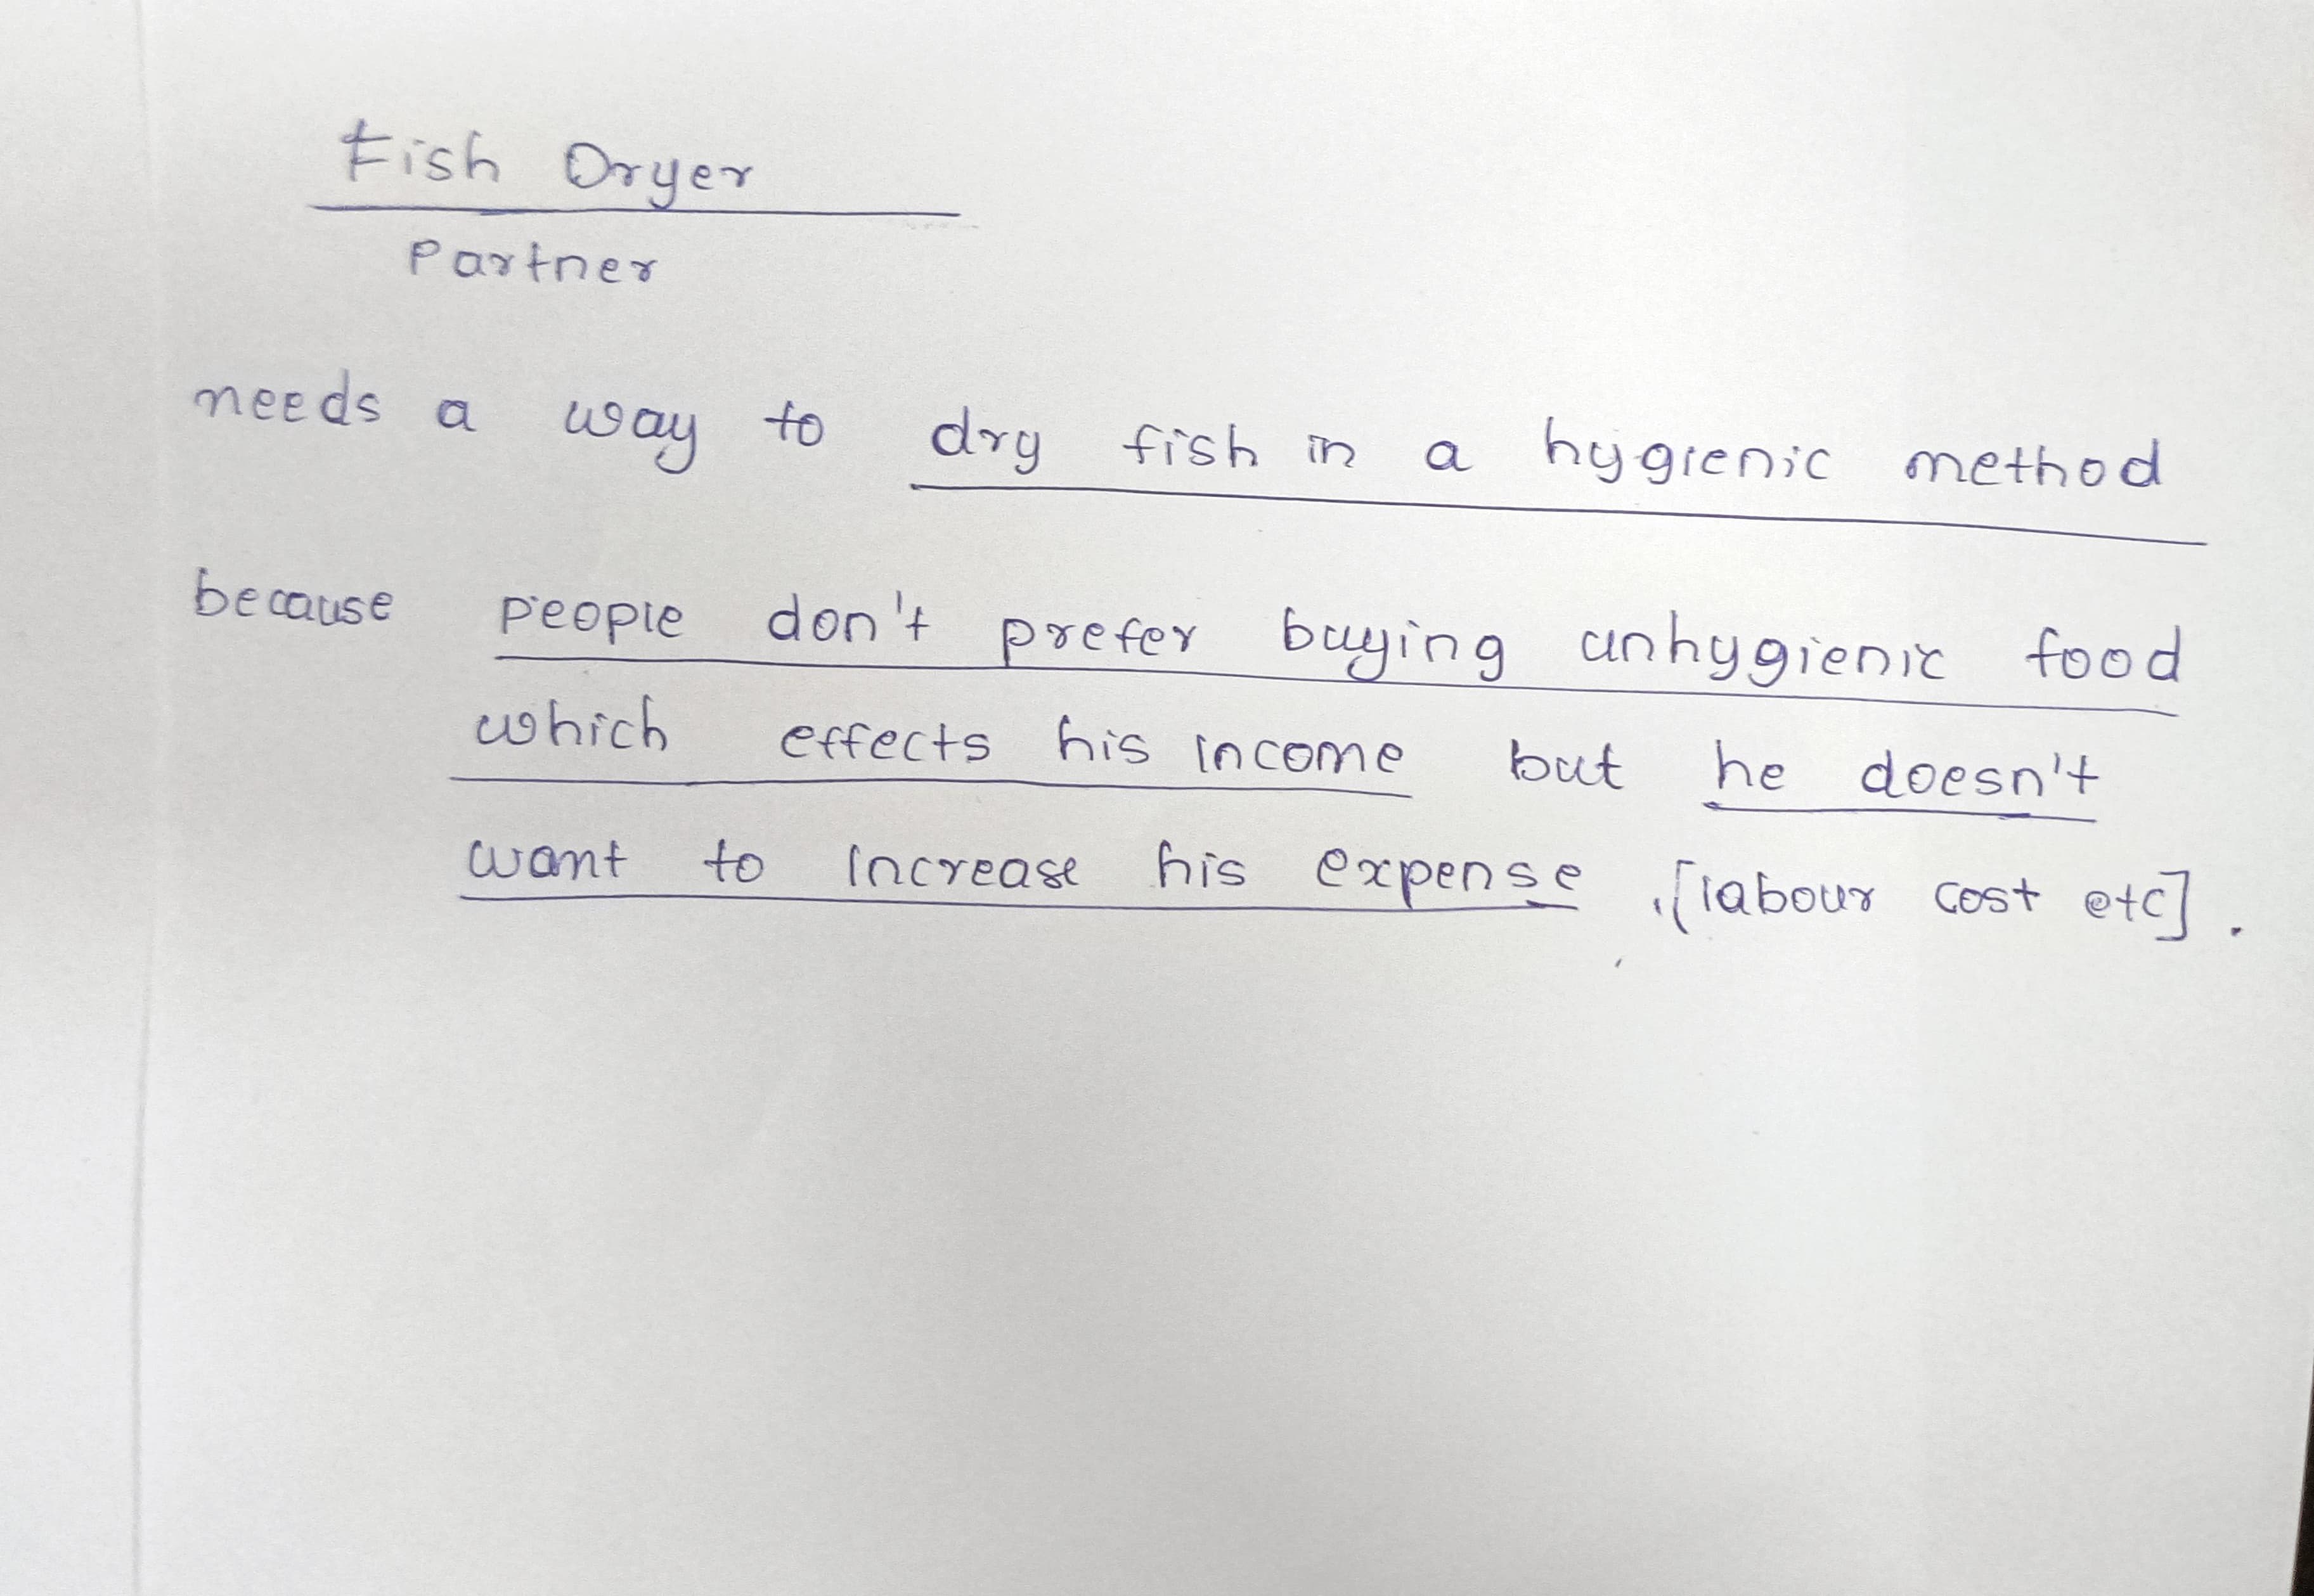 Fish Dryer
Partner
needs a way to dry fish in a hygienic method
because people don't prefer buying unhygienic food
which effects his income but he doesn't
want to increase his expense . [labour cost etc] .